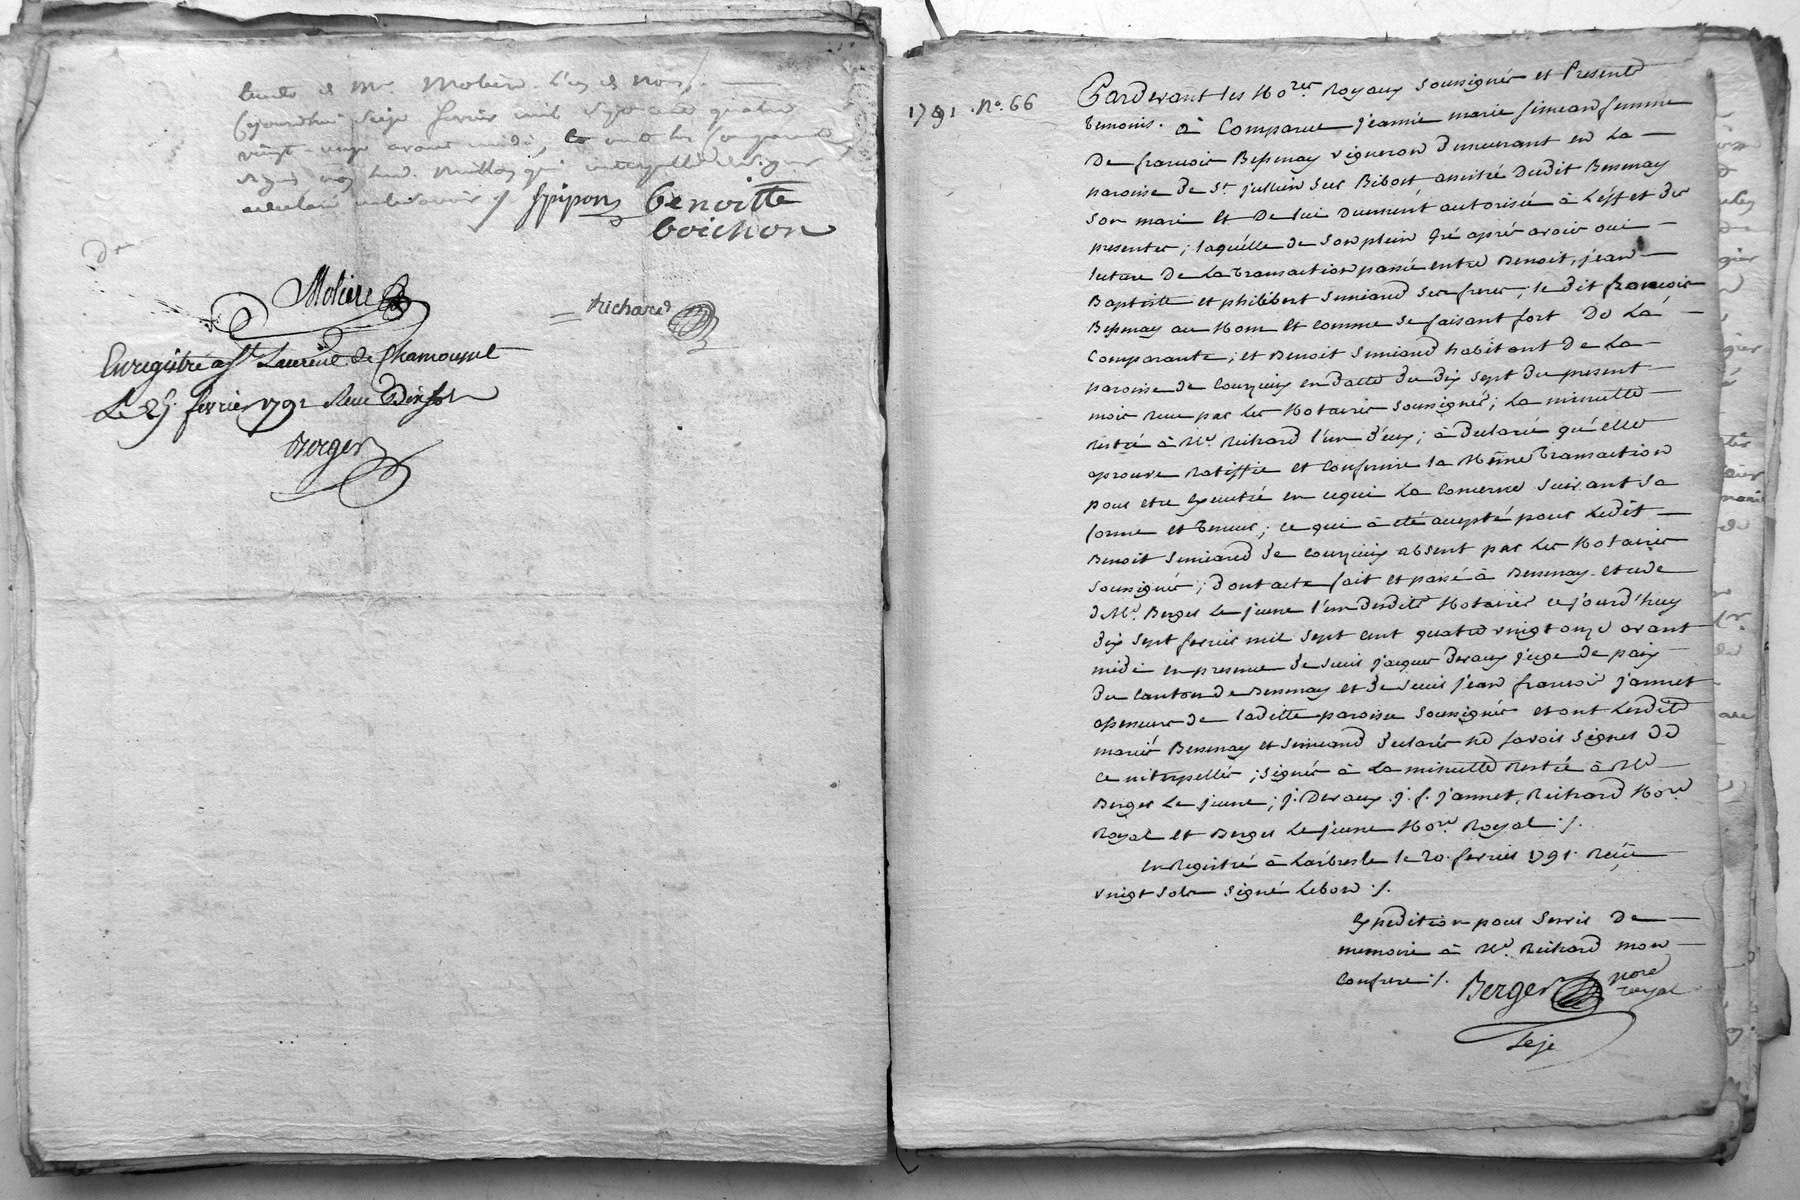 Cejourdhui seize fevrier mil sept cent quatre
vingt onze avant midi, et ont les comparants
Spipon Benoitte
Boichon
Moliere
Richard
Enregistré a St Laurent de Chamousset
Le 25. fevrier 1791 Recu
Berger
1791. No. 66
Pardevant les Nores Royaux soussignés et Presents
temoins. a Comparue jeanne marie simeand femme
De francois Bessenay vigneron Demeurant en La
paroisse De St. jullien sur Bibost autorisé dudit Bessenay
son mari et De lui Duement autorisé à L'effet des
presentes; laquelle de son plein Gré aprés avoir oui
lecture De La transaction passée entre Benoit, jean
Baptiste et philibert simeand ses freres; le dit francois
Bessenay au Nom et comme se faisant fort De La
Comparante; et Benoit simeand habitant de La
paroisse de Courzieux en datte du dix sept du present
mois reçue par les Notaires soussignés; La minutte
restée à Me. Richard l'un d'eux; à declaré qu'elle
aprouve Ratiffie et confirme la Même Transaction
pour etre Executée en cequi La Concerne suivant sa
forme et teneur; ce qui à été accepté pour Ledit
Benoit simeand de Courzieux absent par Les Notaires
soussignés; dont acte fait et passé à Bessenay etude
de Me. Berger Le jeune l'un desdits Notaires cejourd'huy
dix sept fevrier mil sept cent quatre vingt onze avant
midi en presence de sieur jacques Devaux juge de paix
du Canton de Bessenay et de sieur jean francois jannet
de laditte paroisse soussignés et ont Lesdits
mariés Bessenay et simeand declarés ne savoir signer de
ce interpellés; signés à La minutte restée à Me
Berger Le jeune; j. Devaux. j. f. jannet, Richard Nore
Royal et Berger Le jeune Nore. Royal ./.
Enregistré à Larbresle le 20. fevrier 1791. Reçu
vingt sols signé Lebon ./.
Expedition pour servir De
memoire à Me. Richard mon
Confrere ./. Berger nore
royal
Leje